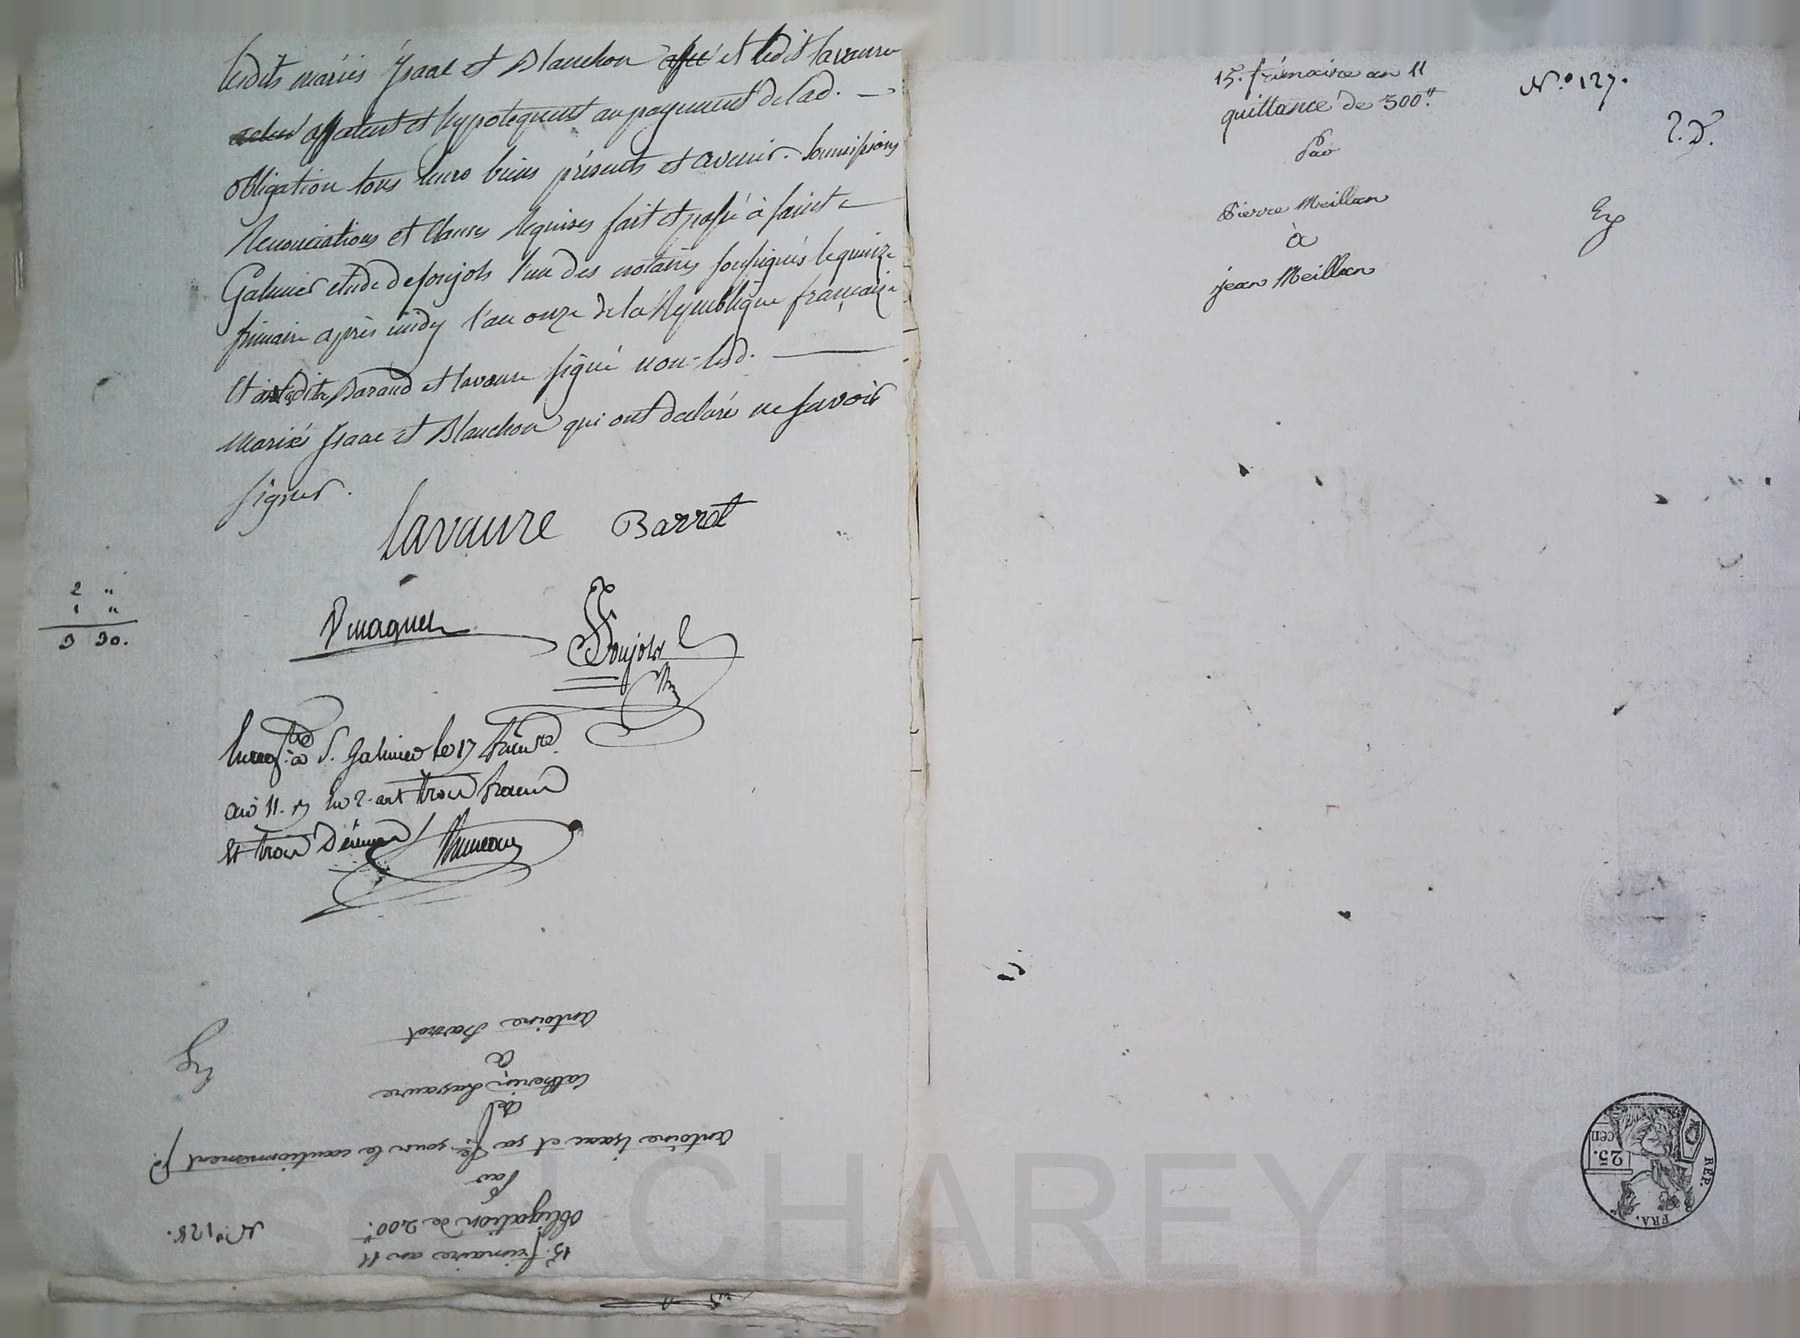 lesdits mariés Isaac et Blanchon et ledit Lavaure
affectent et hypotequent au payement de lad. —
obligation tous leurs biens présents et avenir. Soumissions
Renonciations et Clauses Requises fait et passé à saint
Galmier etude de foujols l'un des notaires soussignés le quinze
frimaire après midy l'an onze de la République française
et Baraud et lavaure signé non lesd. —
mariés Isaac et Blanchon qui ont declaré ne savoir
signer.
Lavaure Barrot
2 "
1 "
3 30.
foujols
à S. Galmier le 17 frim.re
an 11. trois francs
et trois Décimes
15. frimaire an 11
obligation de 200.#
N.o 128.
Par
antoine Isaac et sa f.e sous le cautionnement
de
Catherin Lavaure
à
antoine barrot
15. frimaire an 11
quittance de 300.#
Par
Pierre Meillan
à
jean Meillan
N.o 127.
2. D.
Ex
REP.
FRA.
25.
cen
CHAREYRON